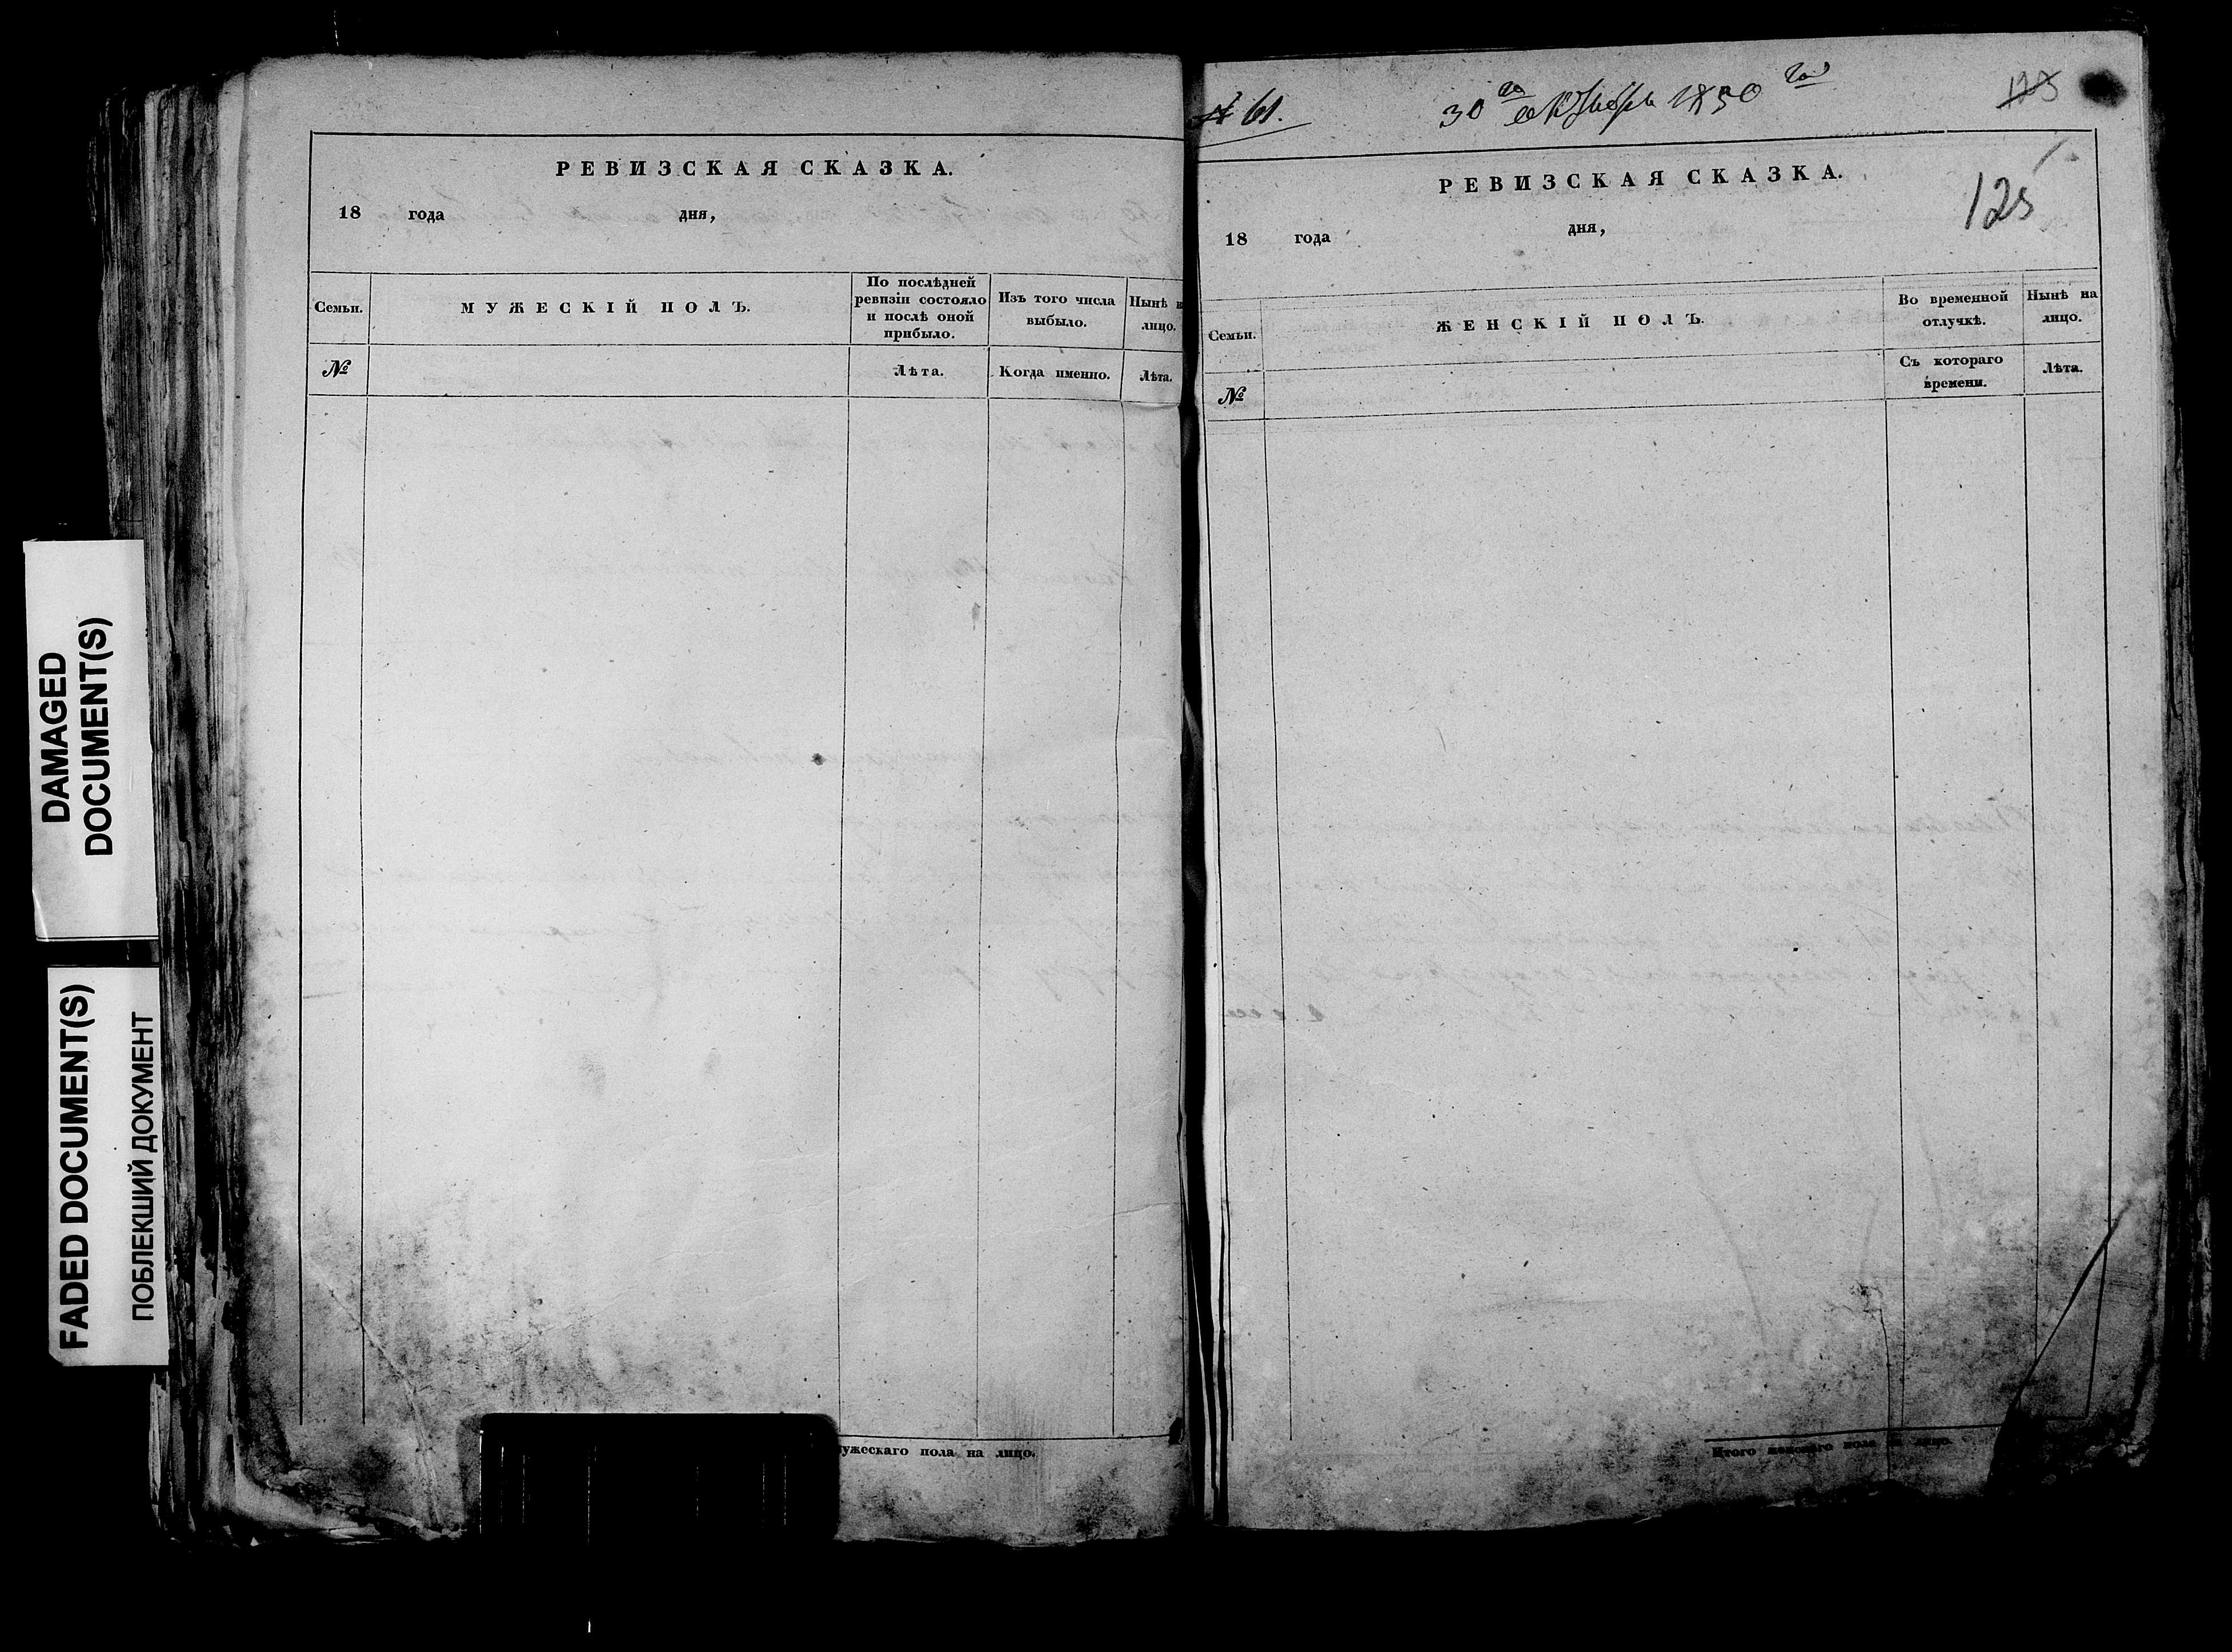 DAMAGED
DOCUMENT(S)
FADED DOCUMENT(S)
ПОБЛЕКШИЙ ДОКУМЕНТ
РЕВИЗСКАЯ СКАЗКА.
18 года дня,
Семьи.
МУЖЕСКІЙ ПОЛЪ.
По послѣдней
ревизіи состояло
и послѣ оной
прибыло.
Изъ того числа
выбыло.
Нынѣ
лицо.
№
Лѣта.
Когда именно.
Лѣта.
мужескаго пола на лицо.
№ 61.
30го октября 1850 год
125
125
РЕВИЗСКАЯ СКАЗКА.
18 года дня,
Семьи.
ЖЕНСКІЙ ПОЛЪ.
Во временной
отлучкѣ.
Нынѣ на
лицо.
№
Съ котораго
времени.
Лѣта.
Итого женскаго пола на лицо.